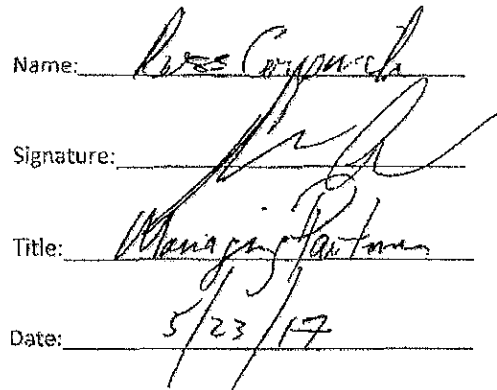 Name: Ross
Signature:
Title: Managing Partner
Date: 5/23/17